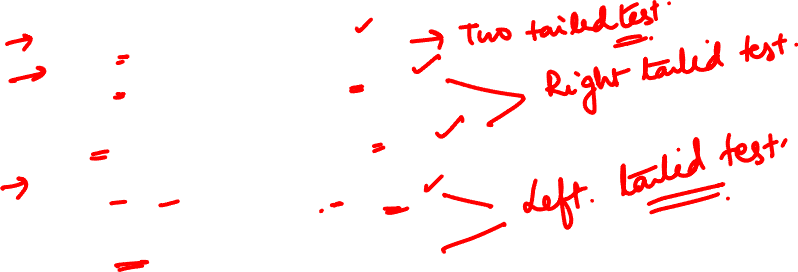 → Two tailed test.
Right tailed test.
Left. tailed test.